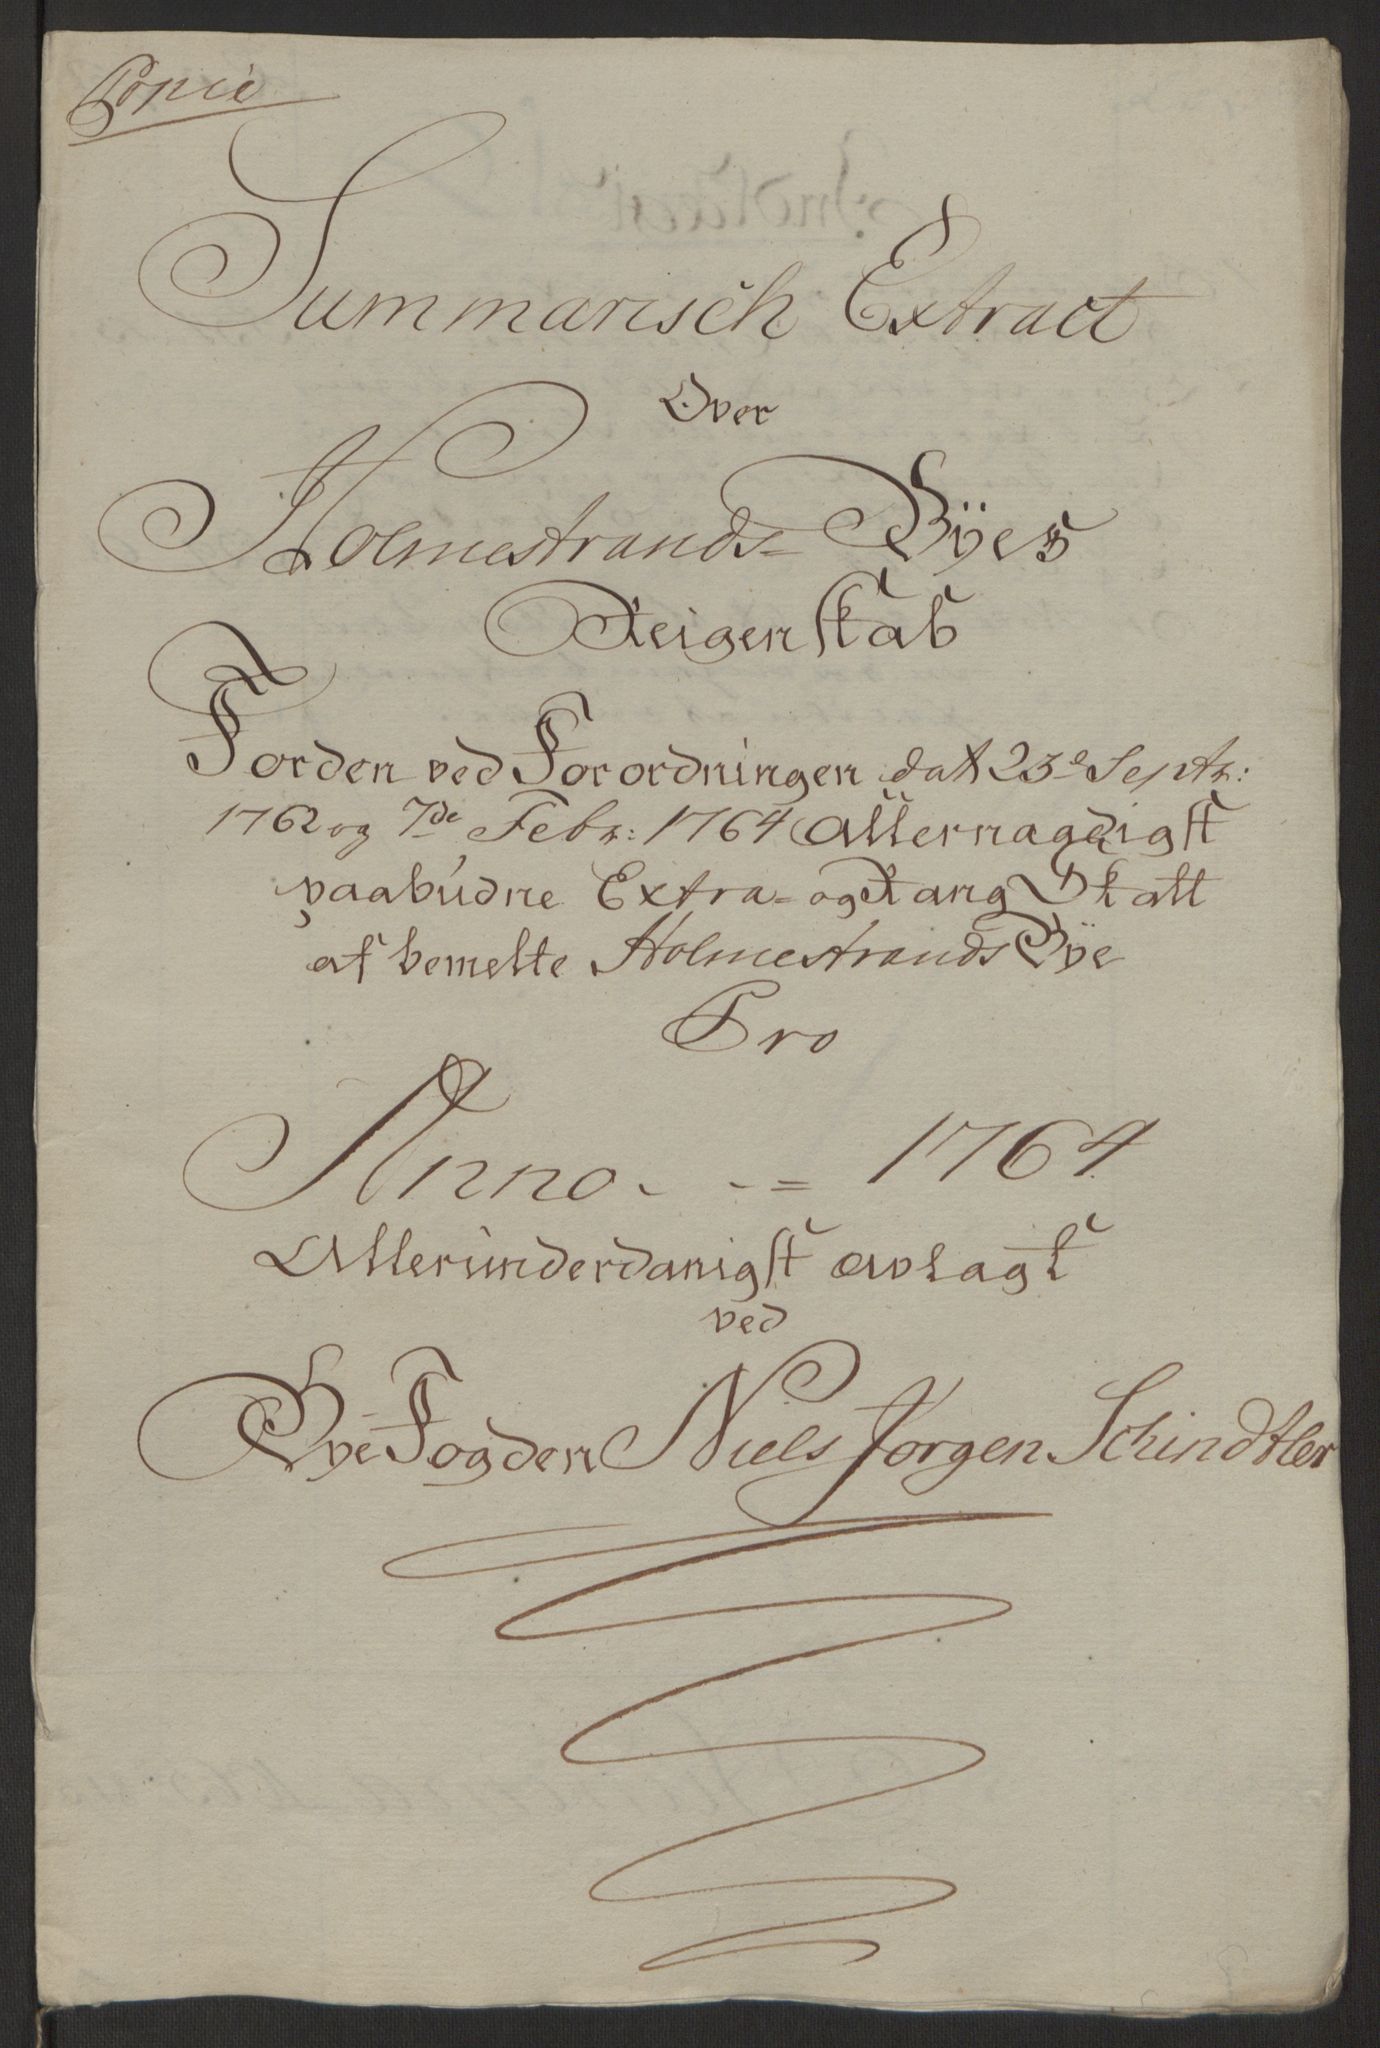 Copie
Summarisch Extract
Over
Holmestrands= Byes
Reigenskab
For den ved Forordningen dat 23e Septr:
1762 og 7de Febr: 1764 Allernaadigst
paabudne Extra= og Rang Skatt
af bemelte Holmestrands Bye
Pro
Anno - -= 1764
Allerunderdanigst avlagt
ved
Bye Fogden Niels Jørgen Schindtler